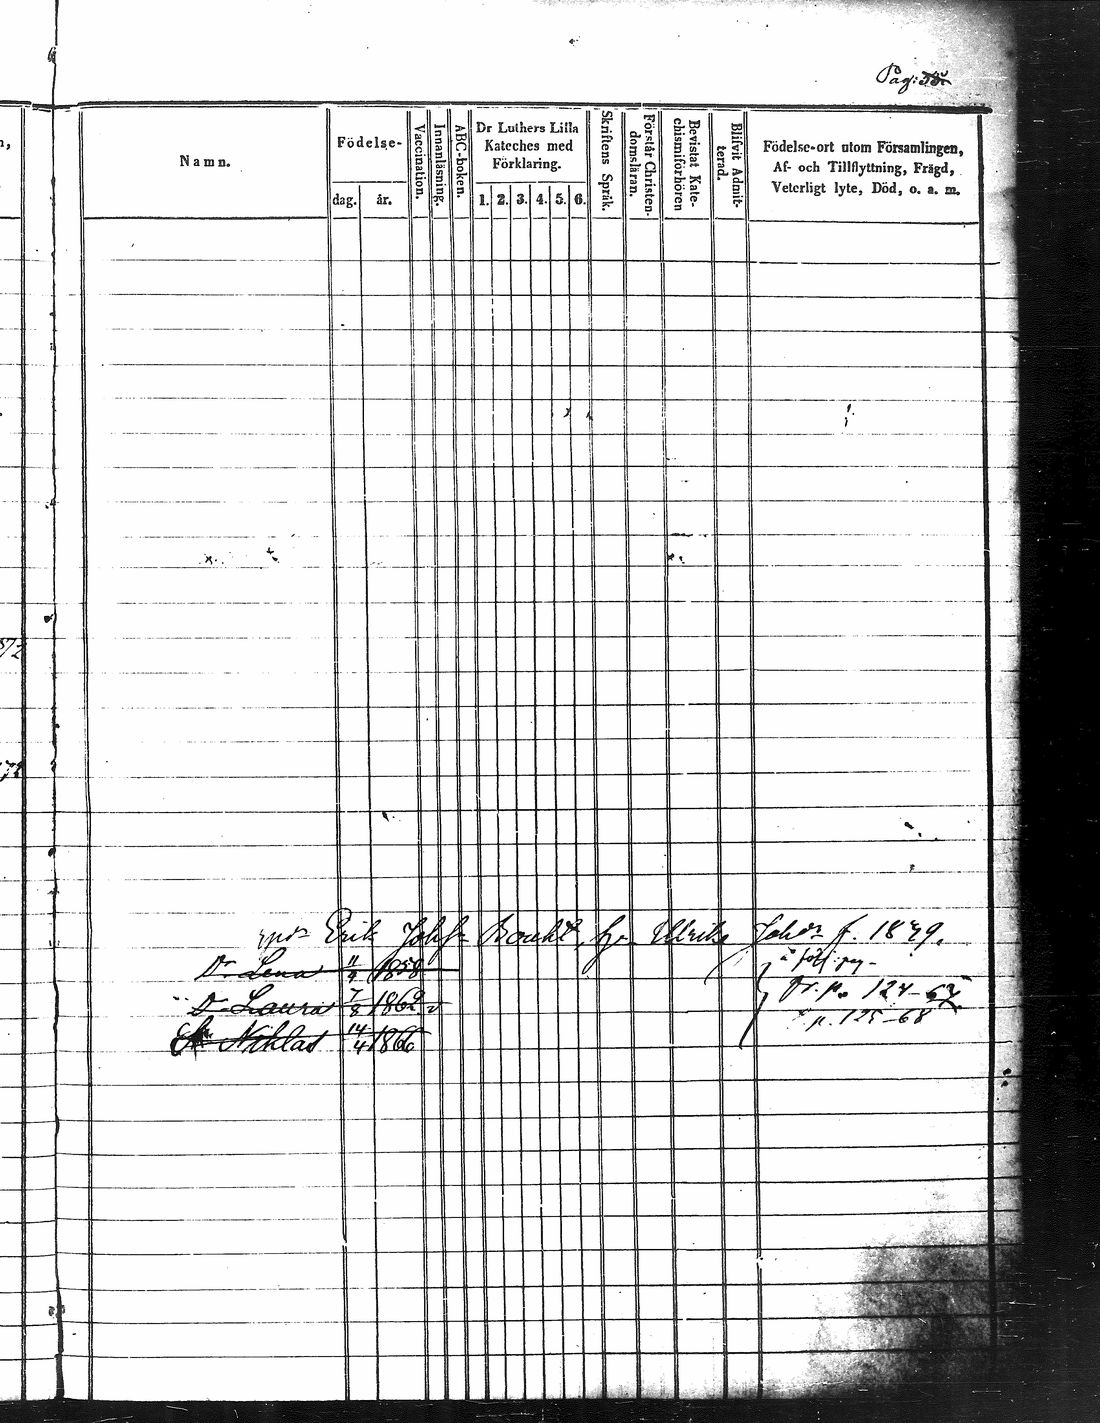 Pag: 55.
Namn.
Födelse-
dag. år.
Vaccination.
Innanläsning.
ABC-boken.
Dr Luthers Lilla
Kateches med
Förklaring.
1. 2. 3. 4. 5. 6.
Skriftens Språk.
Förstår Christen-
domsläran.
Bevistat Kate-
chismiförhören
Blifvit Admit-
terad.
Födelse-ort utom Församlingen,
Af- och Tillflyttning, Frägd,
Veterligt lyte, Död, o. a. m.
Erik Johs Ulrika Johsdr f. 1849.
Dr Lena 11/9 1858
Dr Laura 7/8 1862
Niklas 14/4 1866
å följ. pag.
Fr. p. 124-67
p. 125-68